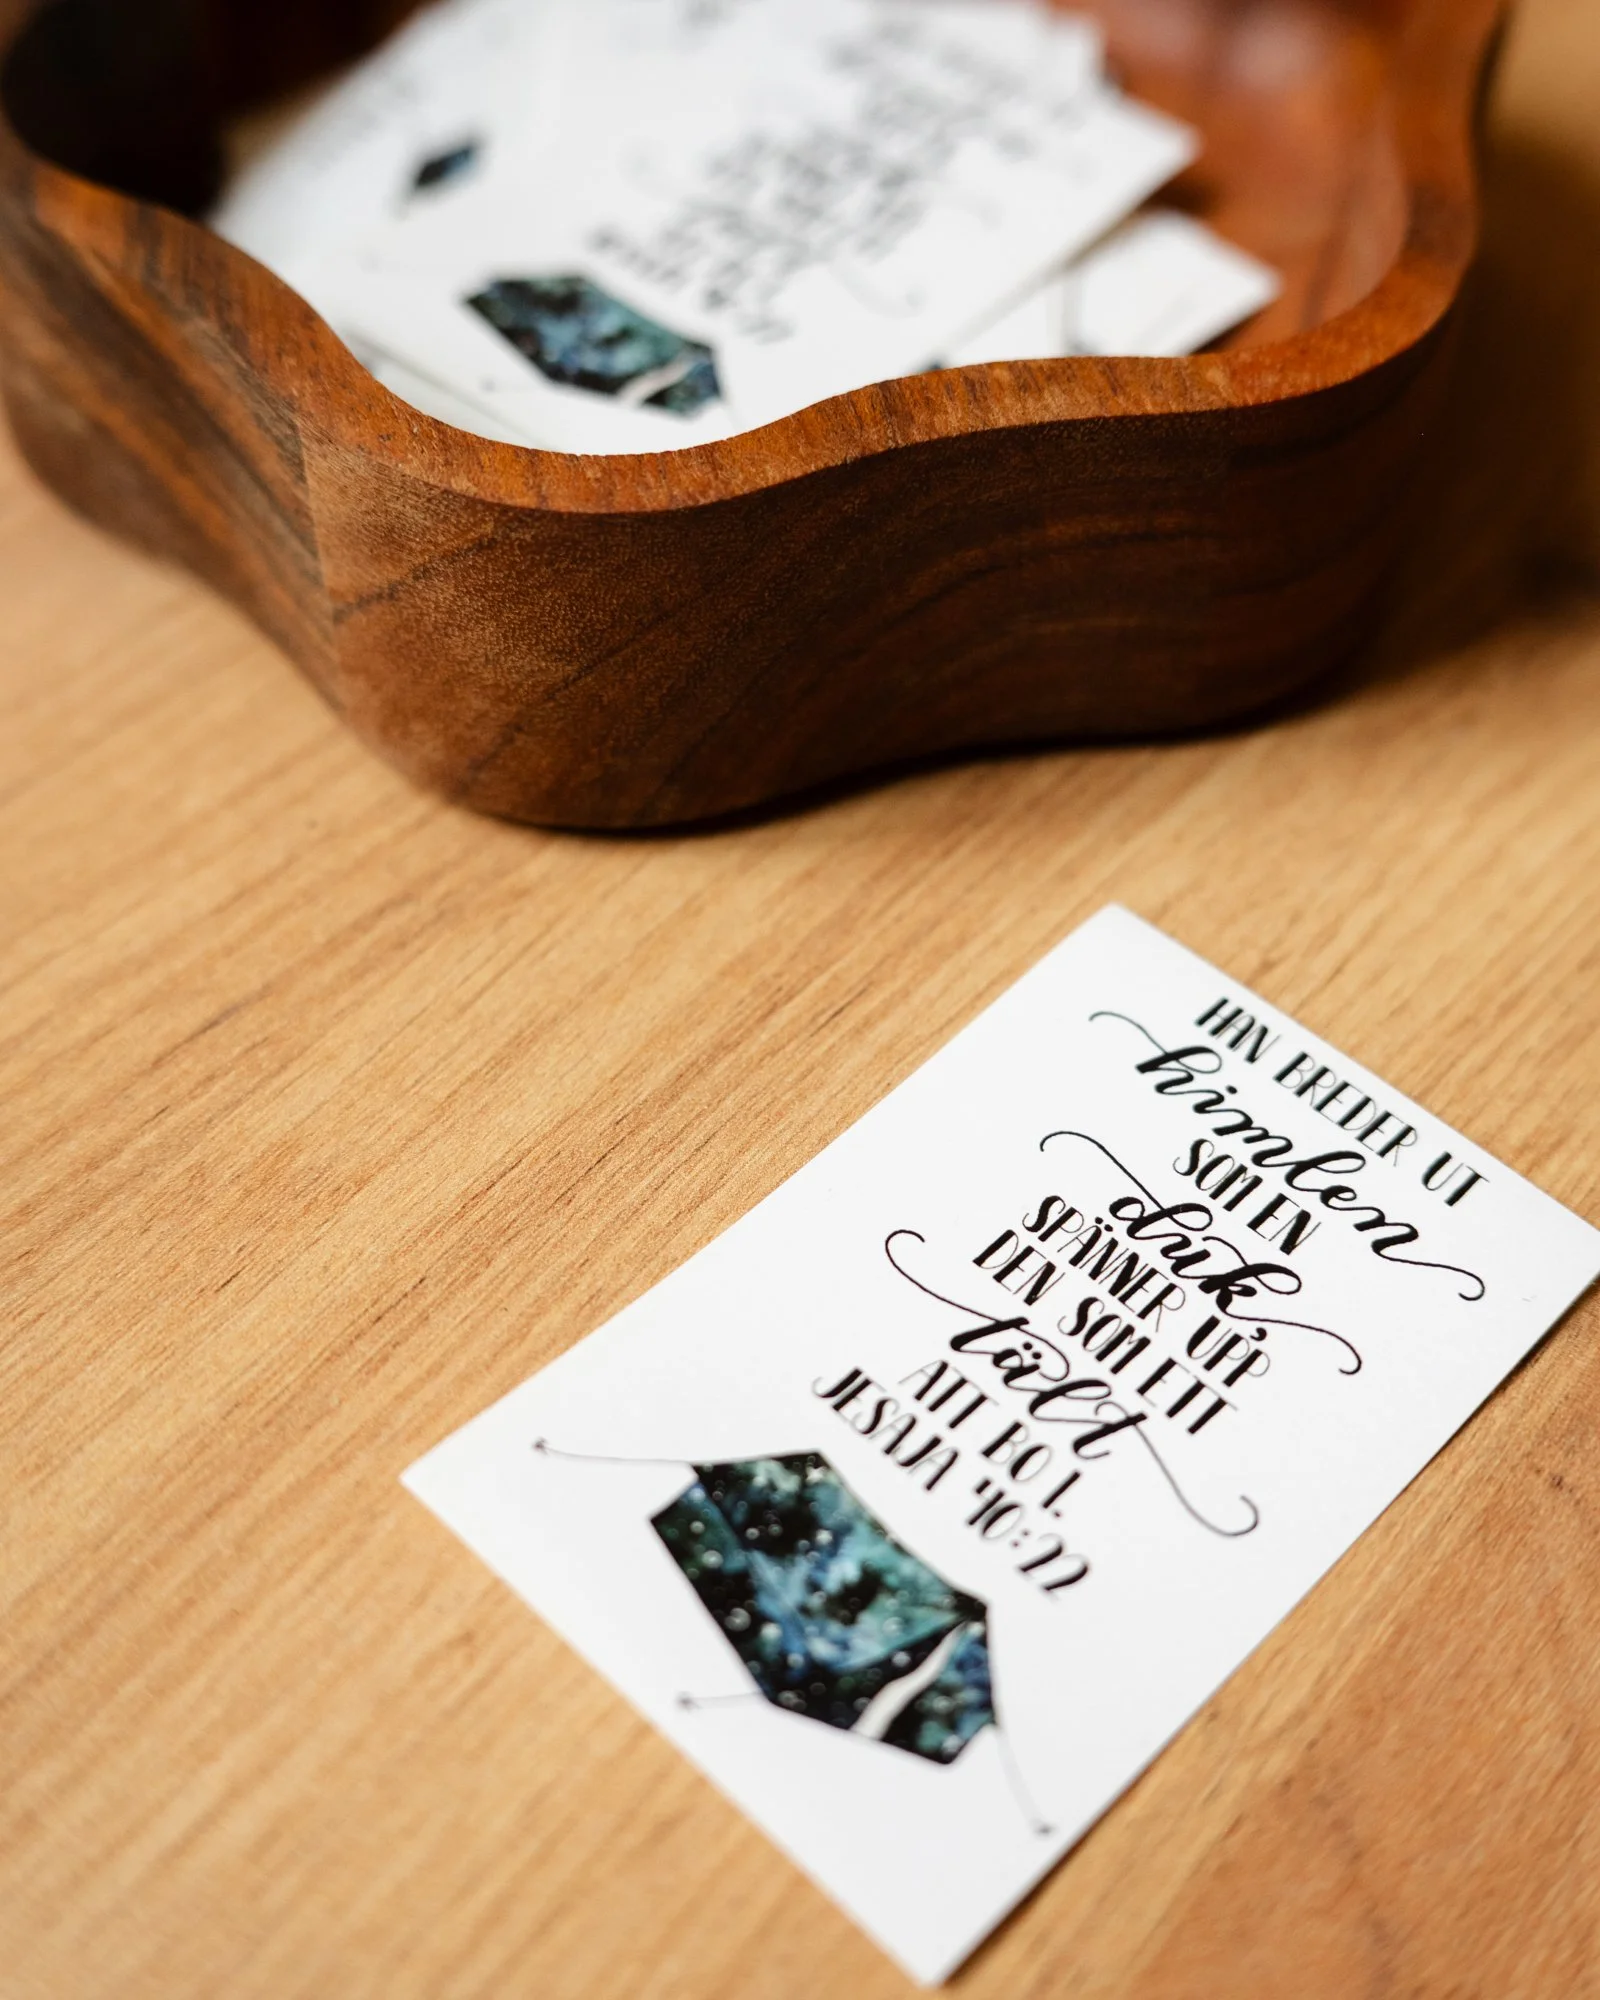 HAN BREDER UT
himlen
SOM EN
duk,
SPÄNNER UPP
DEN SOM ETT
tält
ATT BO I.
JESAJA 40:22